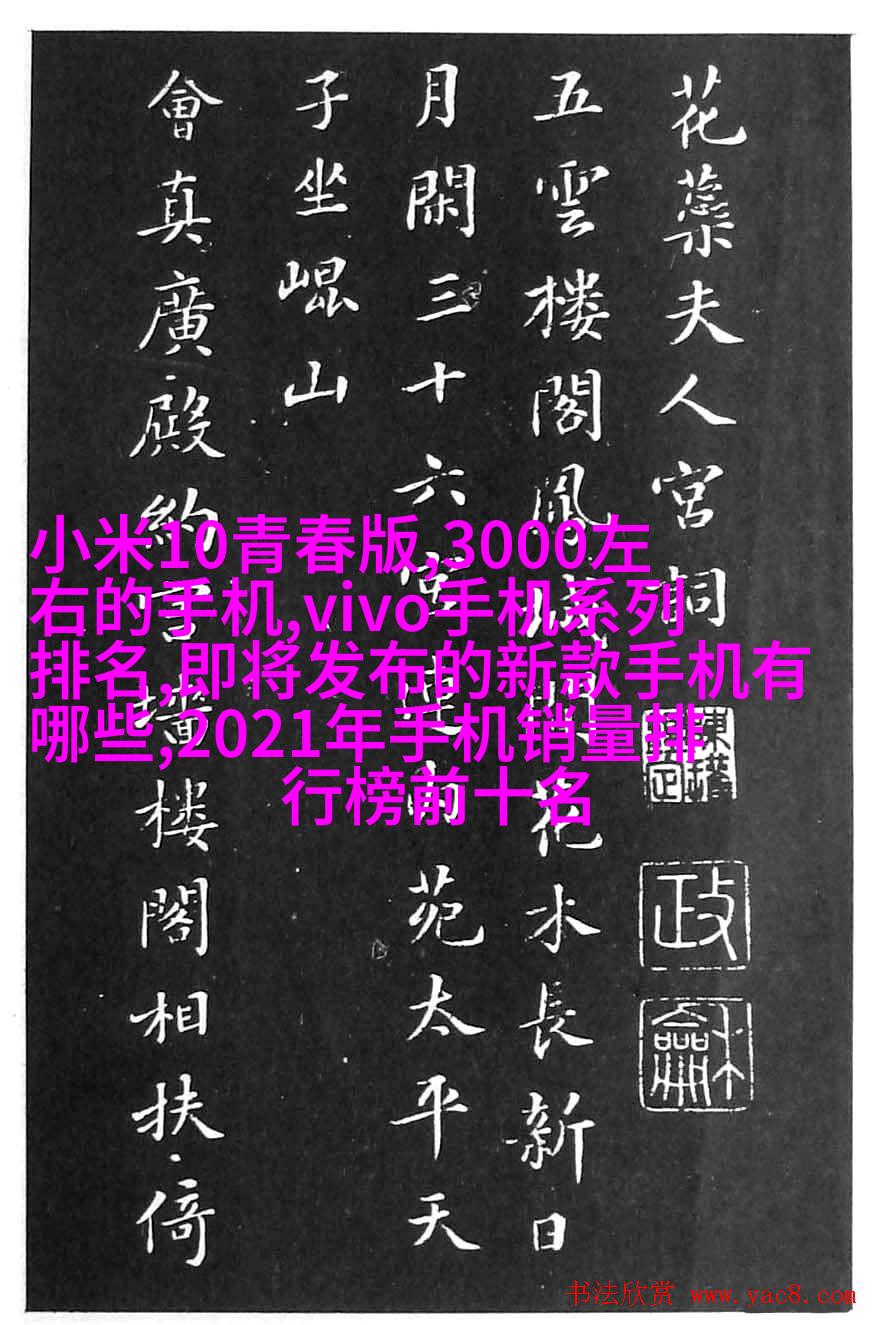 花蘂夫人宮詞
五雲楼閣鳳城間花木長新日
月閑三十六宮連内苑太平天
子坐崐山
會真廣殿約宮墻楼閣相扶倚
小米10青春版,3000左
右的手机,vivo手机系列
排名,即将发布的新款手机有
哪些,2021年手机销量排
行榜前十名
政
龢
书法欣赏 www.yac8.com